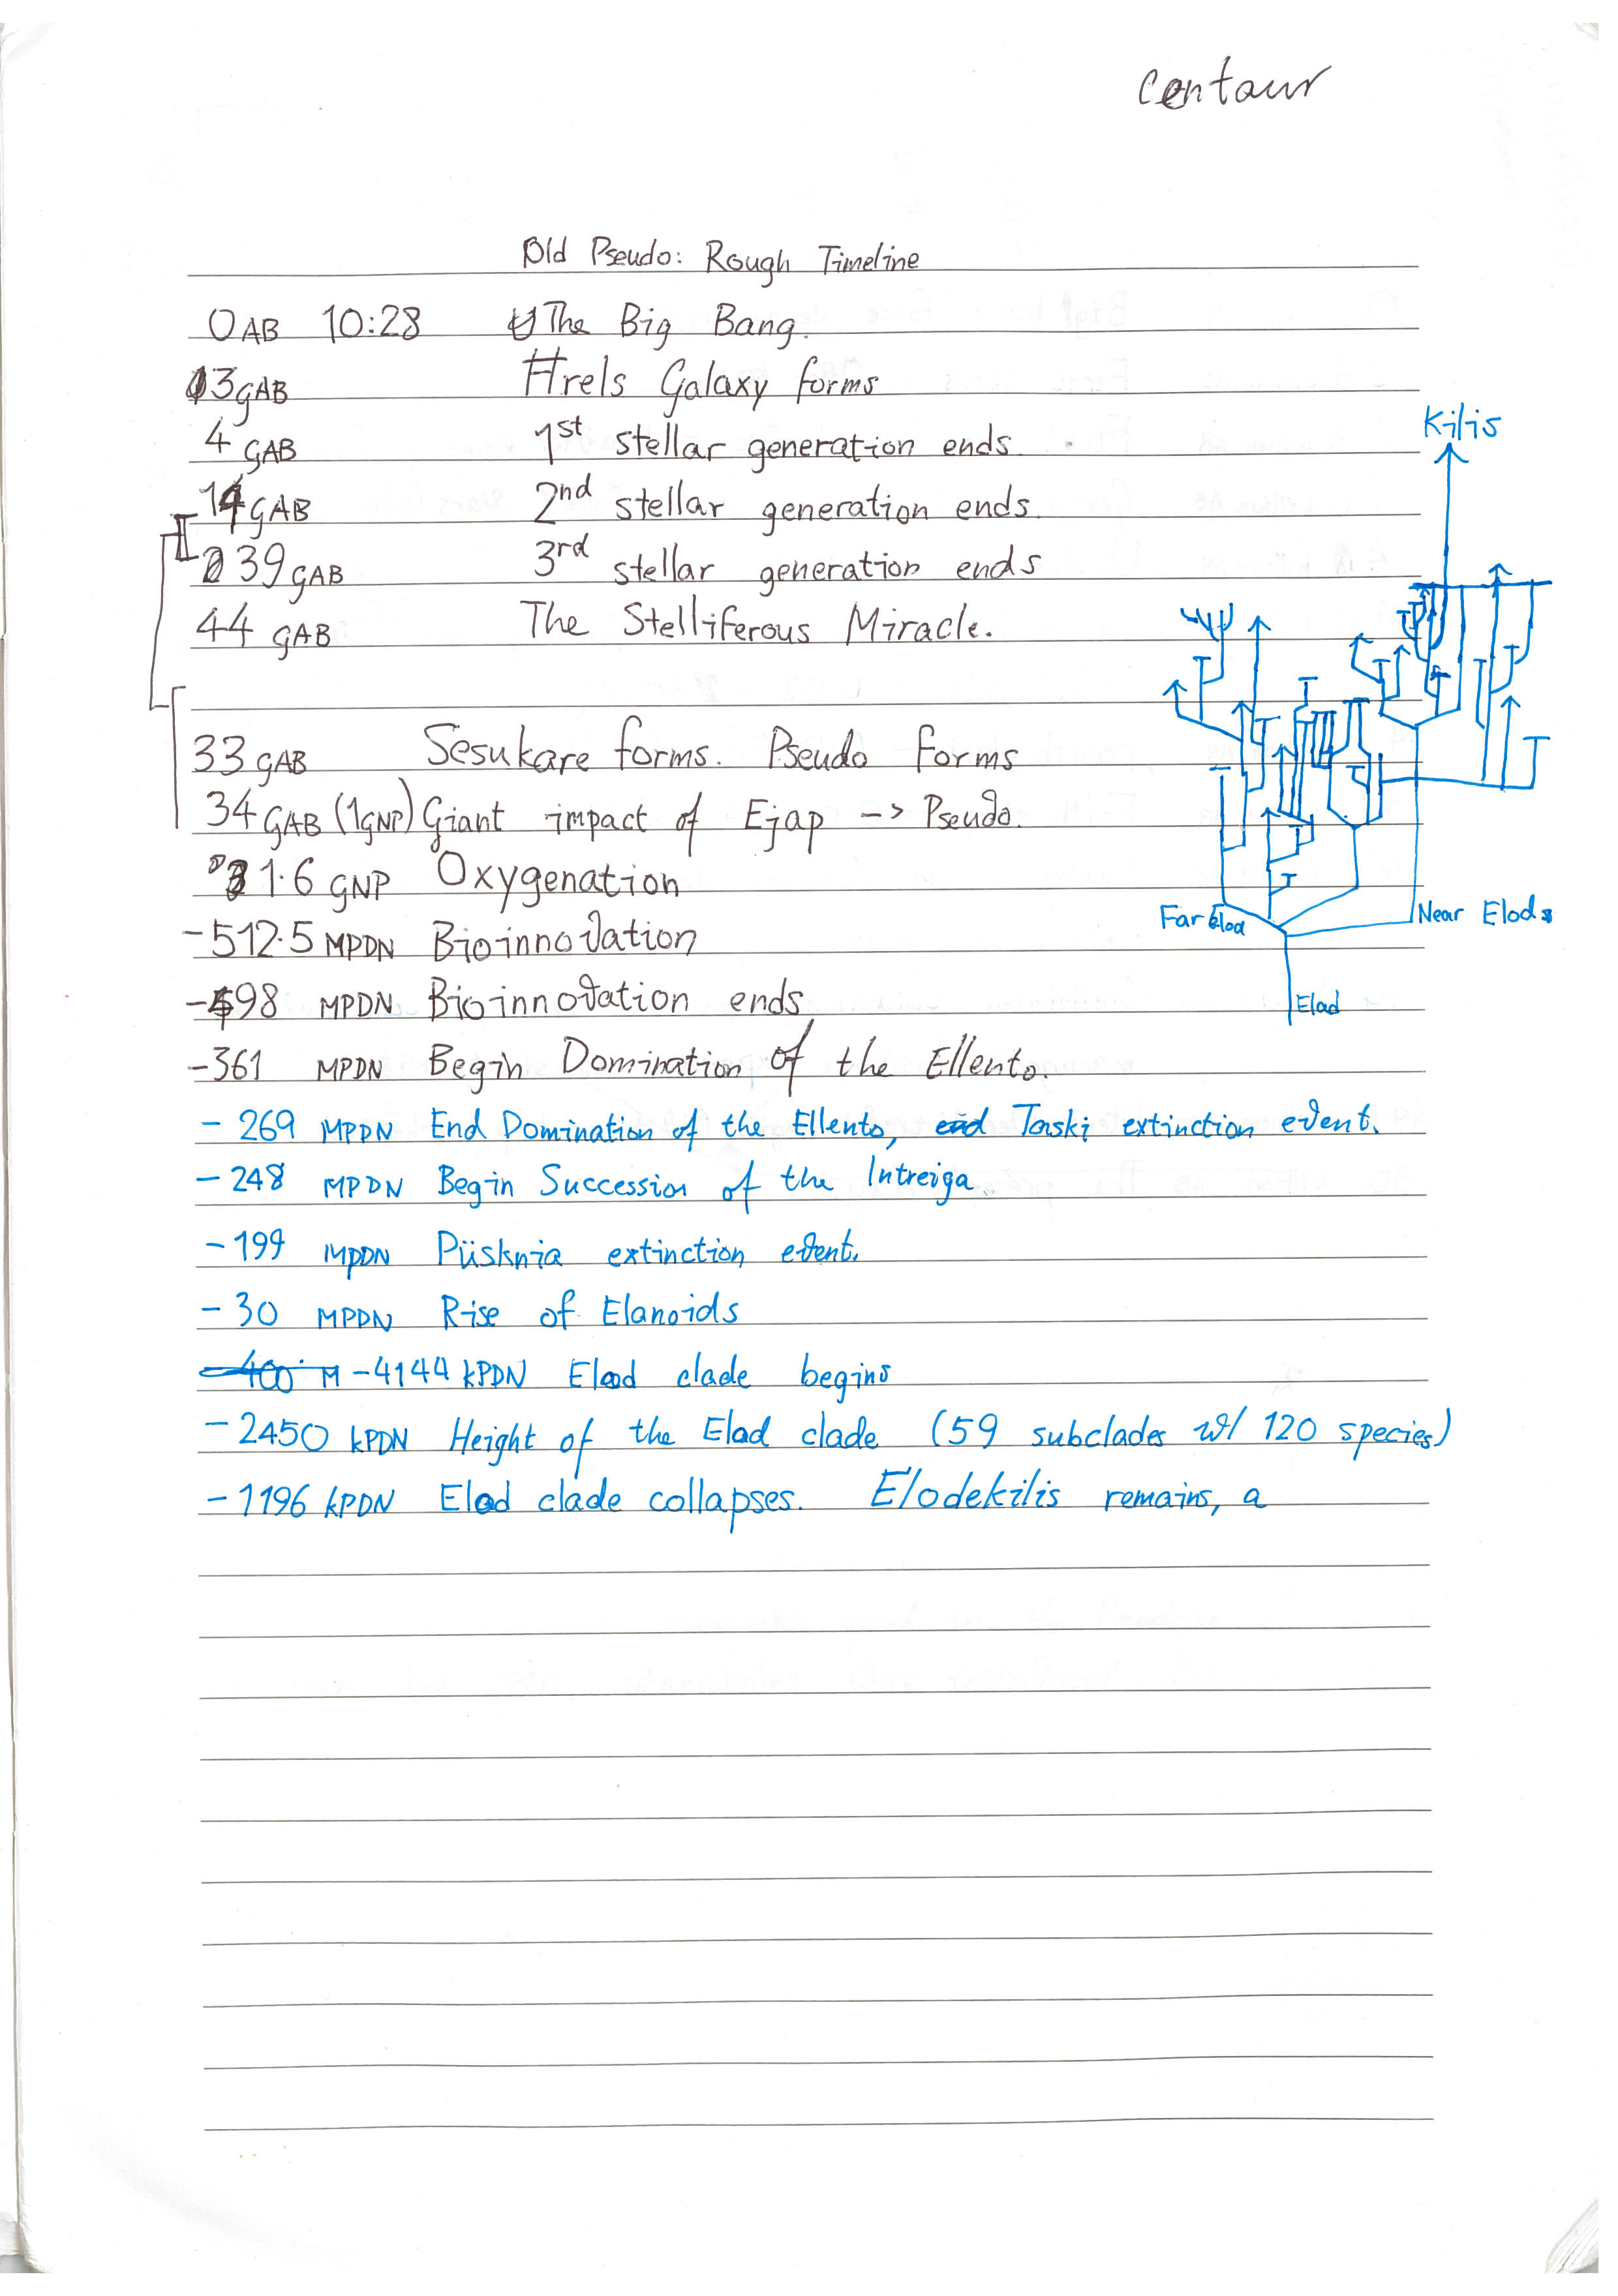 Centaur
Old Pseudo: Rough Timeline
0 AB 10:28 The Big Bang.
3 GAB Hrels Galaxy forms
4 GAB 1st stellar generation ends.
14 GAB 2nd stellar generation ends.
39 GAB 3rd stellar generation ends
44 GAB The Stelliferous Miracle.
33 GAB Sesukare forms. Pseudo Forms
34 GAB (1 GNP) Giant impact of Ejap -> Pseudo.
1.6 GNP Oxygenation
-512.5 MPDN Bioinnovation
-498 MPDN Bioinnovation ends
-361 MPDN Begin Domination of the Ellento.
-269 MPDN End Domination of the Ellento, Taski extinction event.
-248 MPDN Begin Succession of the Intreiga.
-199 MPDN Püsknia extinction event.
-30 MPDN Rise of Elanoids
-4144 kPDN Elad clade begins
-2450 kPDN Height of the Elad clade (59 subclades w/ 120 species)
-1196 kPDN Elad clade collapses. Elodekilis remains, a
Kilis
Far Elod
Near Elods
Elad